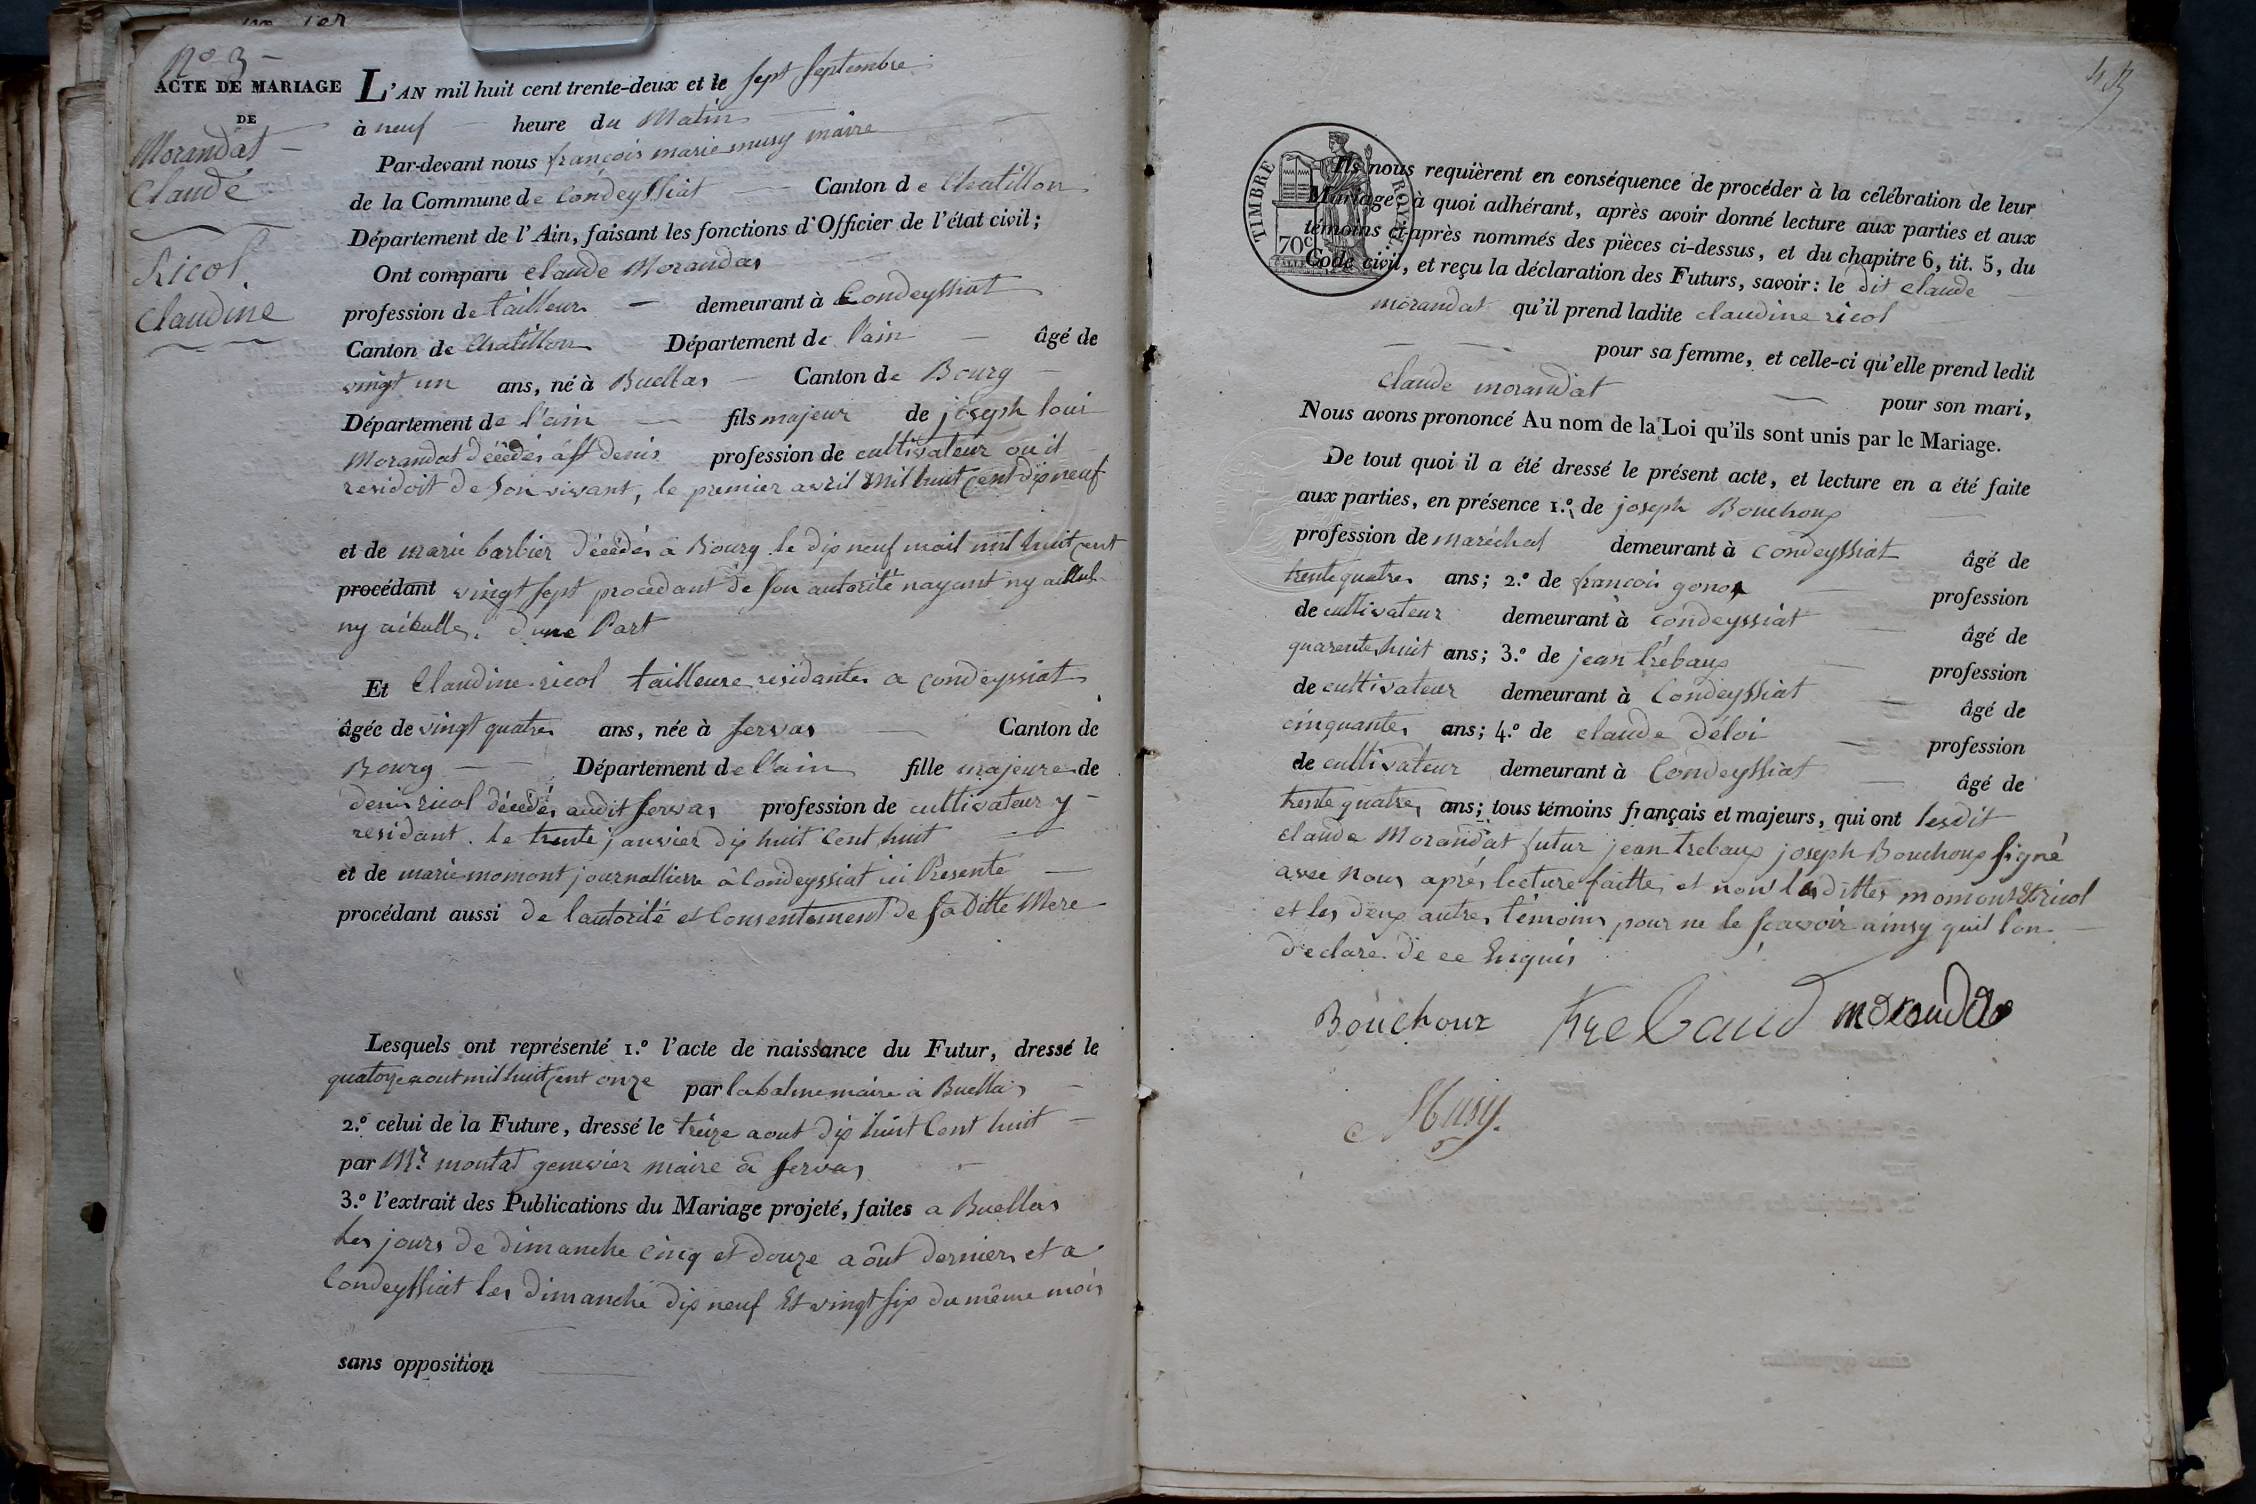 N.º 3
ACTE DE MARIAGE
DE
Morandat
Claude
Ricol
Claudine
L'AN mil huit cent trente-deux et le sept septembre
à neuf heure du Matin
Par-devant nous françois marie musy maire
de la Commune de Condeyssiat Canton de Chatillon
Département de l'Ain, faisant les fonctions d'Officier de l'état civil;
Ont comparu claude Morandat
profession de tailleur demeurant à Condeyssiat
Canton de Chatillon Département de l'ain âgé de
vingt un ans, né à Buellas Canton de Bourg
Département de l'ain fils majeur de joseph loui
Morandat décédés à st denis profession de cultivateur ou il
residoit de son vivant, le premier avril Mil huit cent dix neuf
et de marie barbier décédés à Bourg le dix neuf mail mil huit cent
procédant vingt sept procedant de son autorité nayant ny aieul
ny aieulle. d'une Part
Et Claudine ricol tailleure residante a condeyssiat
âgée de vingt quatre ans, née à servas Canton de
Bourg Département de l'ain fille majeure de
denis ricol décédés audit servas profession de cultivateur y
residant. le trente janvier dix huit Cent huit
et de marie momont journalliere à Condeyssiat ici Presente
procédant aussi de l'autorité et Consentement de sa ditte Mere
Lesquels ont représenté 1.º l'acte de naissance du Futur, dressé le
quatorze aout mil huit cent onze par labalme maire à Buellas
2.º celui de la Future, dressé le treize aout dix huit Cent huit
par Mr. montat genevier maire à servas
3.º l'extrait des Publications du Mariage projeté, faites a Buellas
les jours de dimanche cinq et douze aôut derniers et a
Condeyssiat les dimanche dix neuf Et vingt six du même mois
sans opposition
TIMBRE ROYAL
70 c
Ils nous requièrent en conséquence de procéder à la célébration de leur
Mariage; à quoi adhérant, après avoir donné lecture aux parties et aux
témoins ci-après nommés des pièces ci-dessus, et du chapitre 6, tit. 5, du
Code civil, et reçu la déclaration des Futurs, savoir: le dit claude
morandat qu'il prend ladite claudine ricol
pour sa femme, et celle-ci qu'elle prend ledit
Claude morandat pour son mari,
Nous avons prononcé Au nom de la Loi qu'ils sont unis par le Mariage.
De tout quoi il a été dressé le présent acte, et lecture en a été faite
aux parties, en présence 1.º de joseph Bouchoux
profession de maréchal demeurant à condeyssiat âgé de
trente quatre ans; 2.º de françois gonot profession
de cultivateur demeurant à condeyssiat âgé de
quarente huit ans; 3.º de jean trebaux profession
de cultivateur demeurant à Condeyssiat âgé de
cinquante ans; 4.º de claude déloi profession
de cultivateur demeurant à Condeyssiat âgé de
trente quatre ans; tous témoins français et majeurs, qui ont lesdit
claude Morandat futur jean trebaux joseph Bouchoux signé
avec Nous après lecture faitte et non lesdittes momont et ricol
et les deux autres témoins pour ne le scavoir ainsy quil l'on
declaré de ce Enquis
Bouchoux trebaud morandat
Musy.